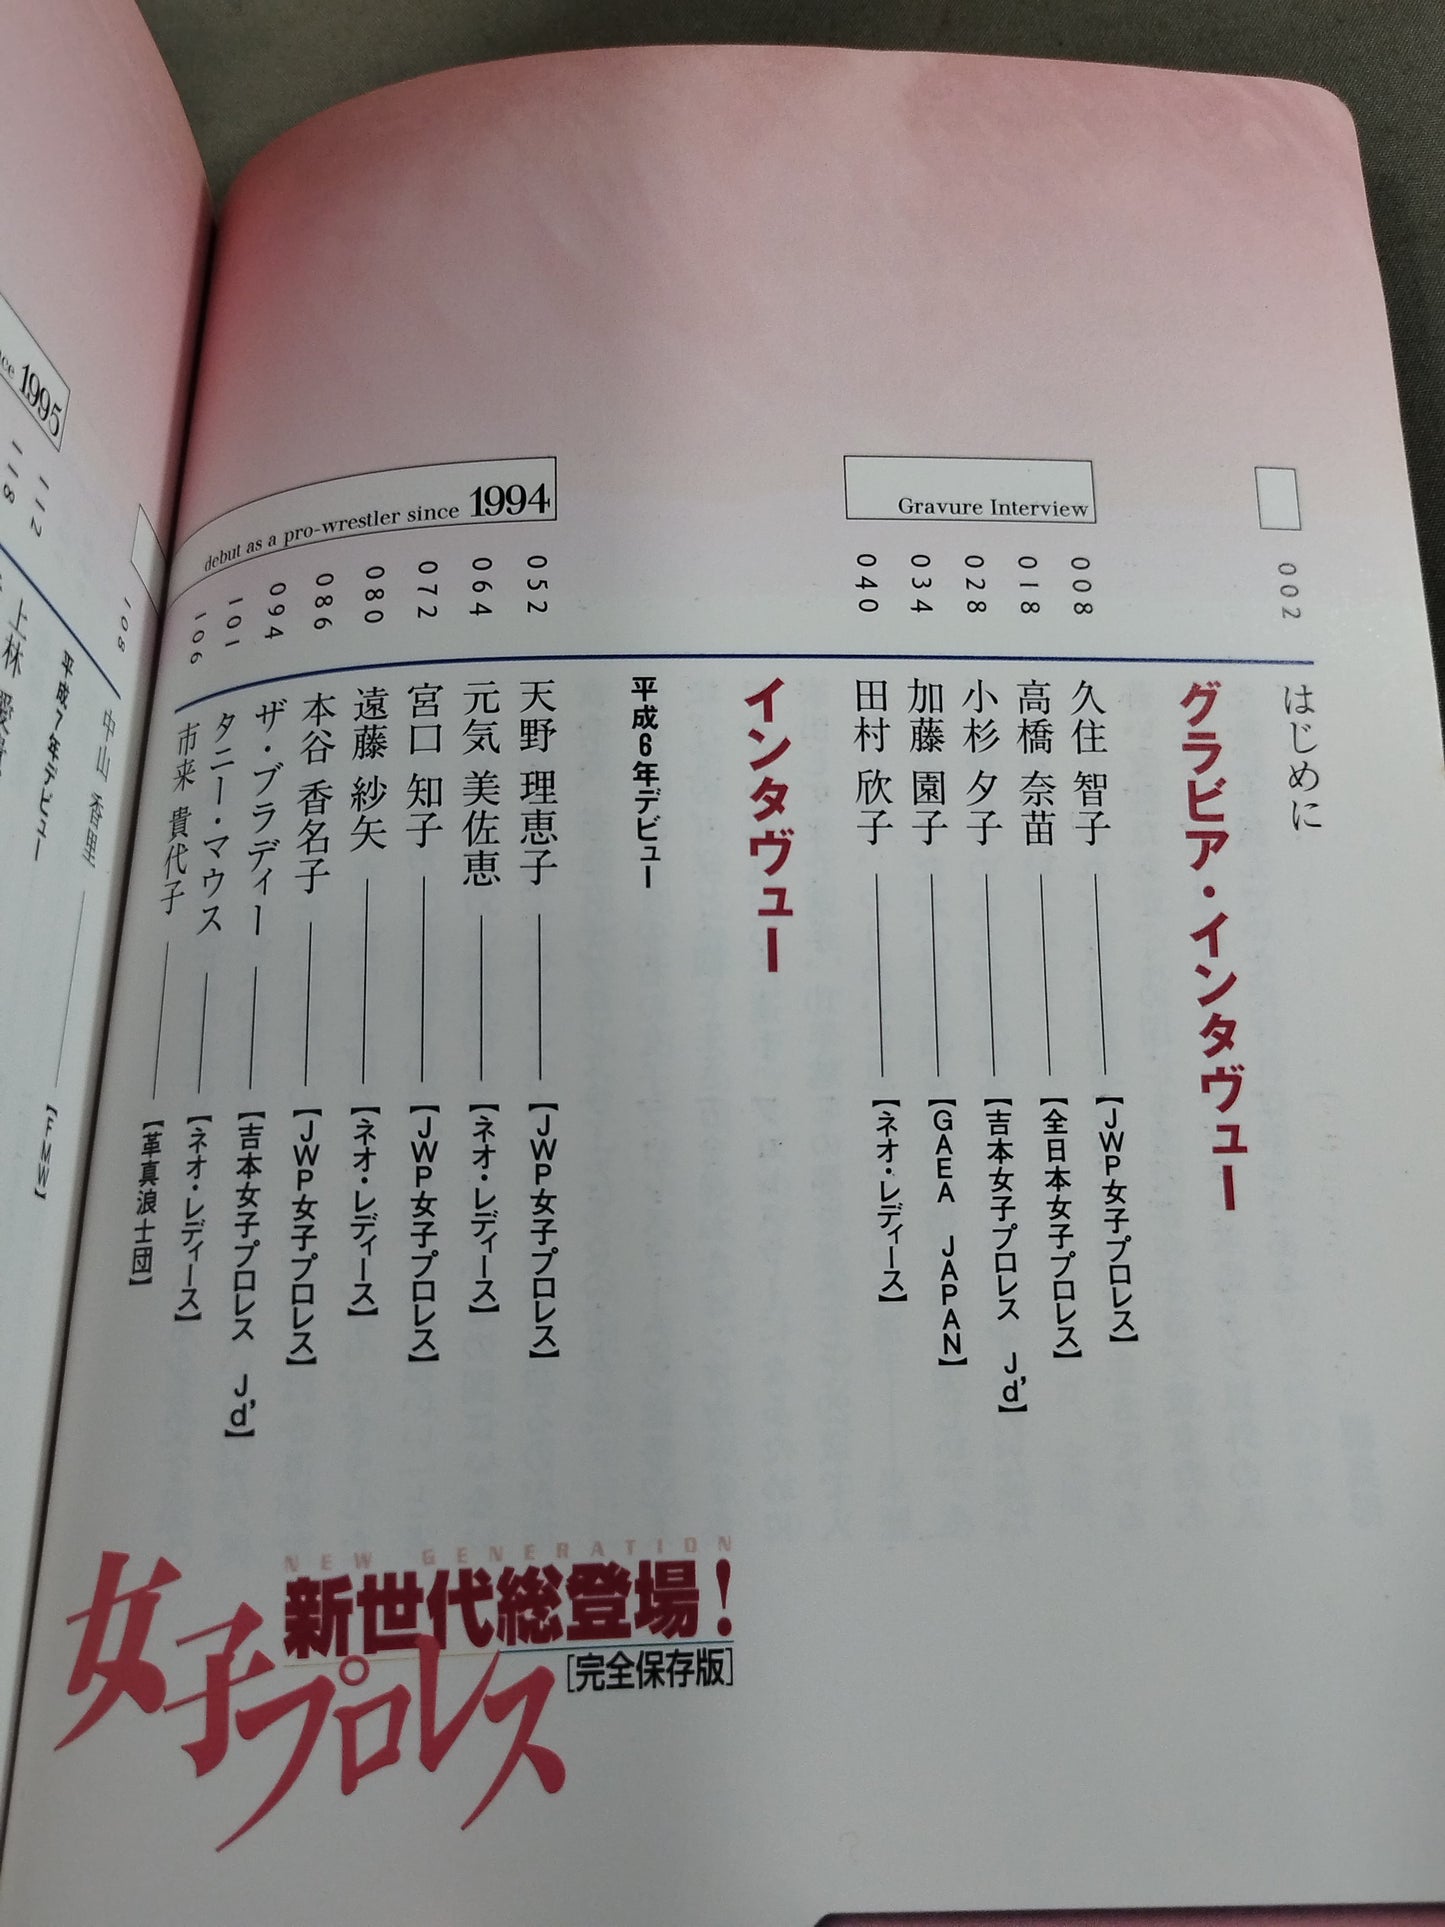 はじめに
002
グラビア・インタヴュー
Gravure Interview
久住 智子 【JWP女子プロレス】 008
高橋 奈苗 【全日本女子プロレス】 018
小杉 夕子 【吉本女子プロレス Jd'】 028
加藤 園子 【GAEA JAPAN】 034
田村 欣子 【ネオ・レディース】 040
インタヴュー
平成6年デビュー
debut as a pro-wrestler since 1994
天野 理恵子 【JWP女子プロレス】 052
元気 美佐恵 【ネオ・レディース】 064
宮口 知子 【JWP女子プロレス】 072
遠藤 紗矢 【ネオ・レディース】 080
本谷 香名子 【JWP女子プロレス】 086
ザ・ブラディー 【吉本女子プロレス Jd'】 094
タニー・マウス 【ネオ・レディース】 101
市来 貴代子 【革真浪士団】 106
NEW GENERATION
新世代総登場!
女子プロレス
[完全保存版]
中山 香里 【FMW】 108
平成7年デビュー
1995
112
118
上林